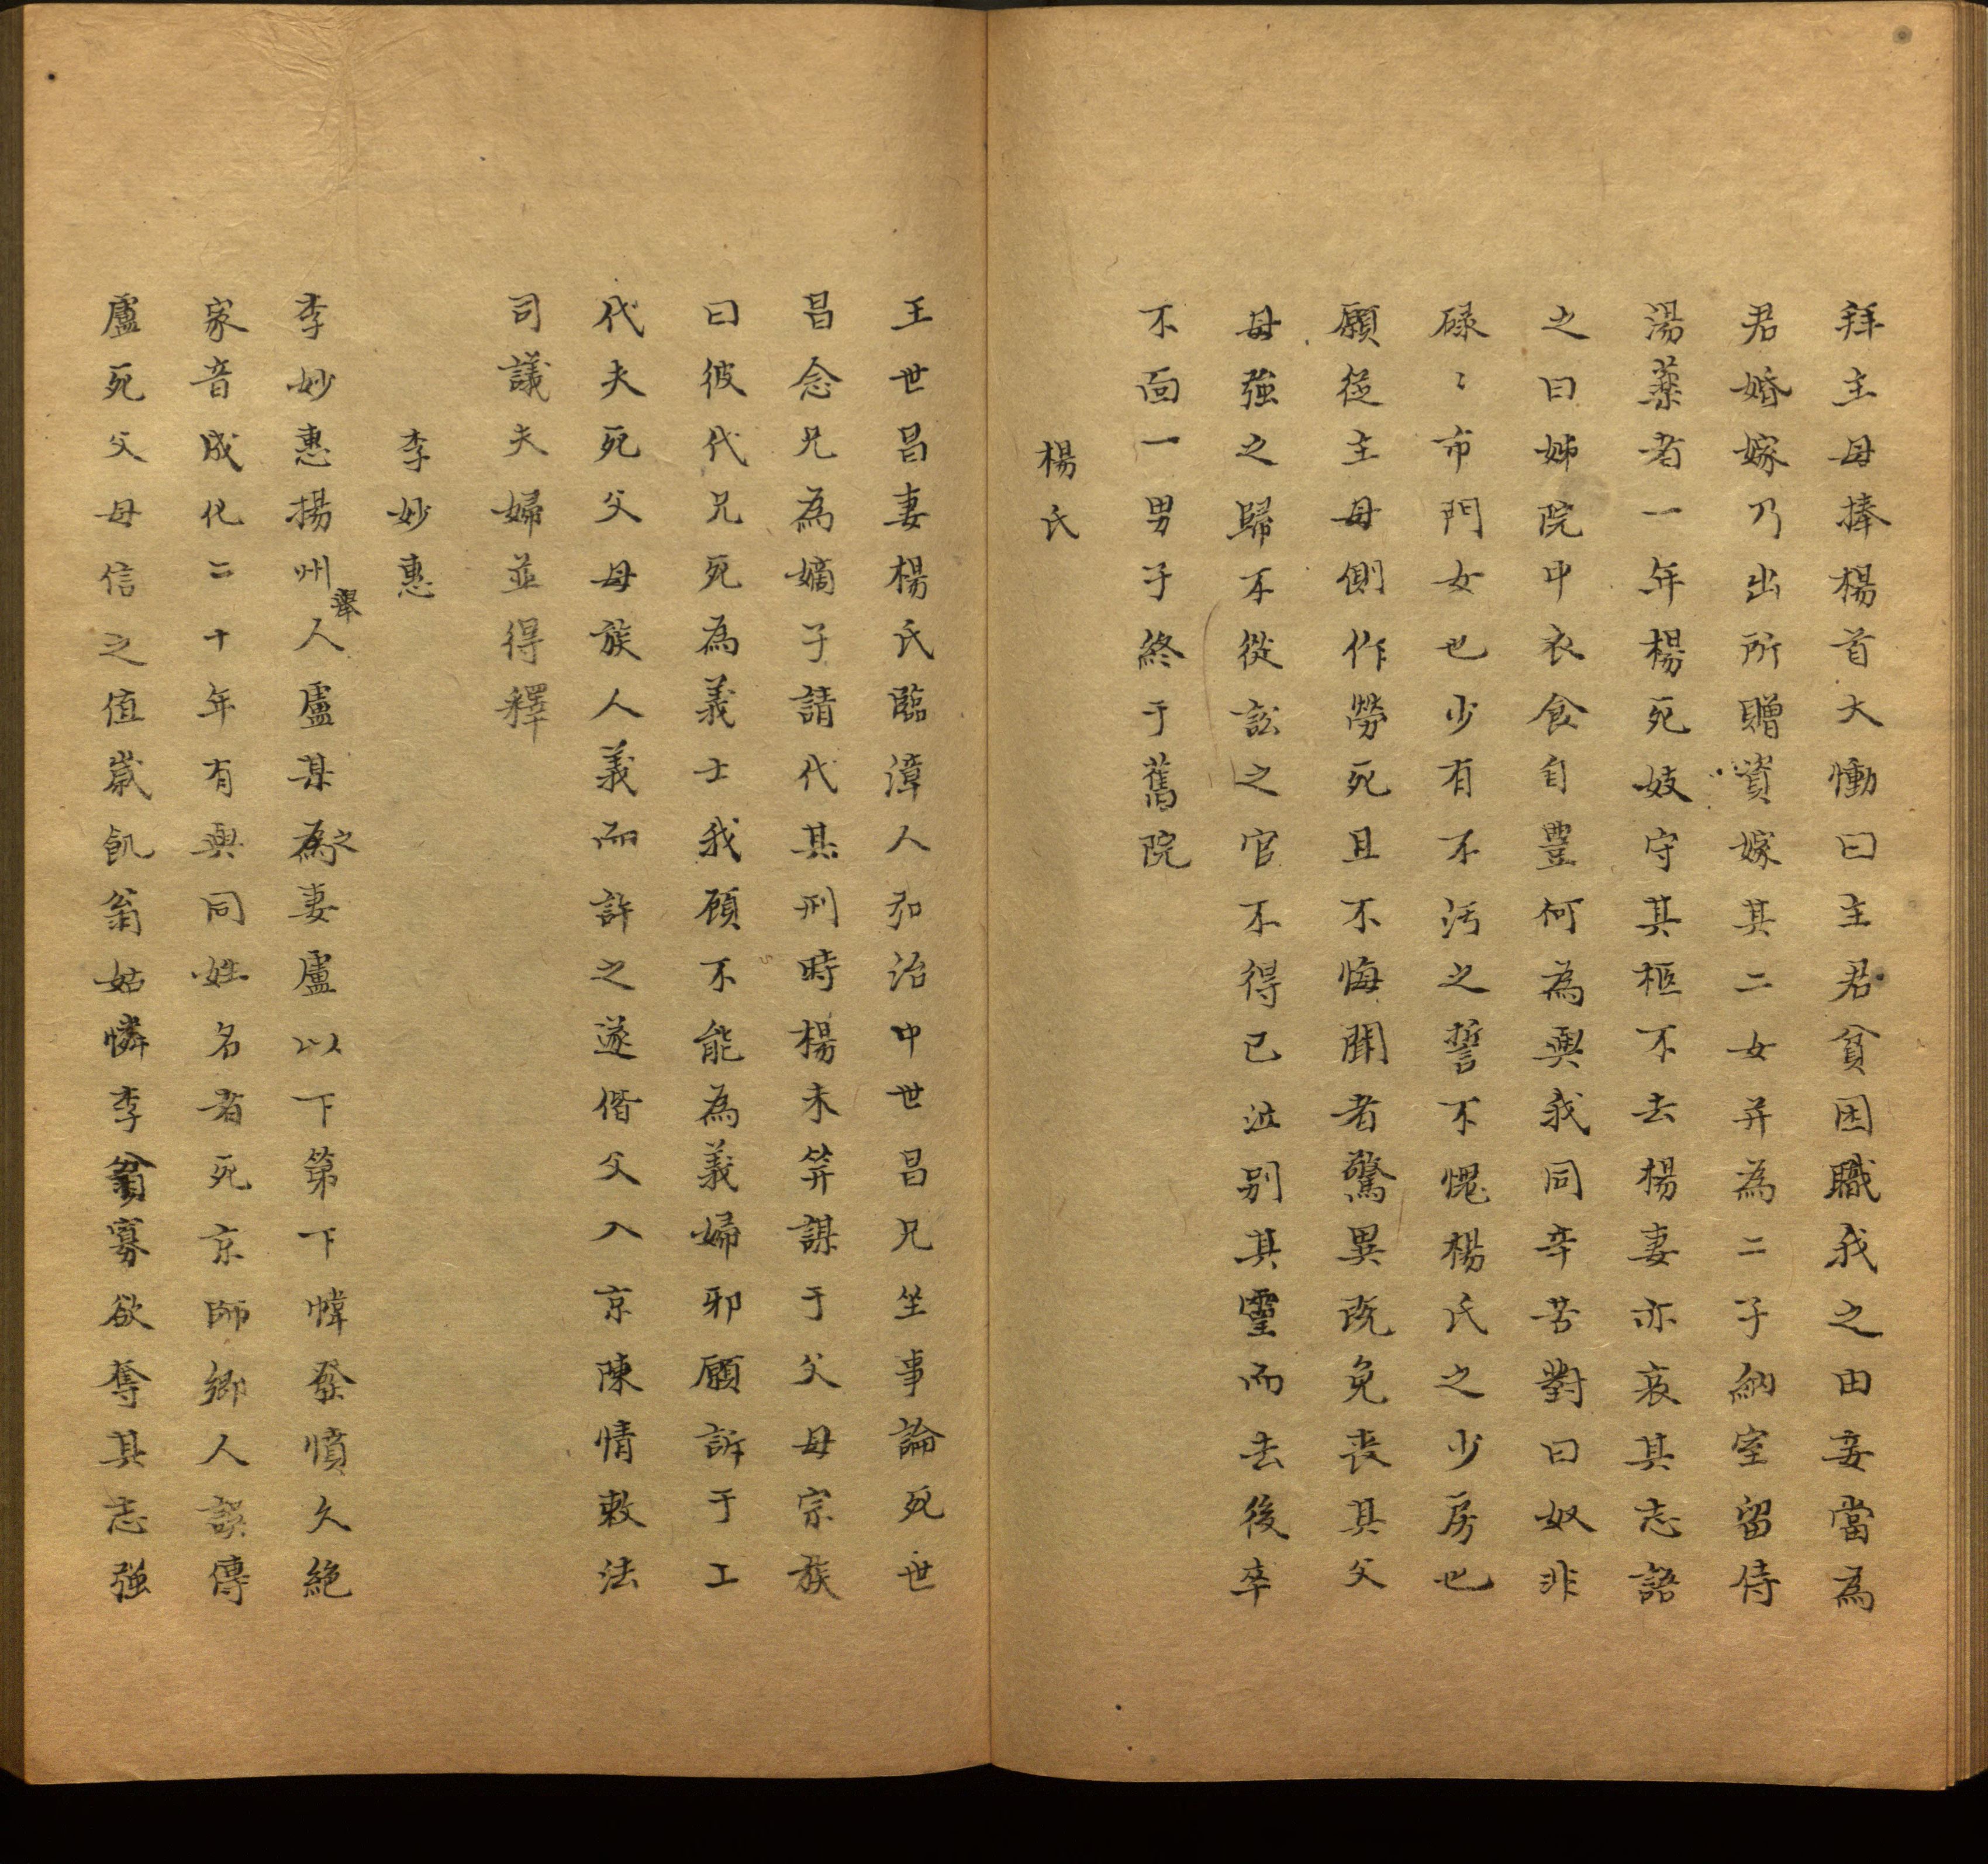 拜主母捧楊首大慟曰主君貧困職我之由妾當為
君婚嫁乃出所贈資嫁其二女并為二子納室留侍
湯藥者一年楊死妓守其柩不去楊妻亦哀其志語
之曰姊院中衣食自豐何為與我同辛苦對曰奴非
碌〻市門女也少有不汚之誓不愧楊氏之少房也
願從主母側作勞死且不悔聞者驚異既免喪其父
母強之歸不從訟之官不得已泣别其靈而去後卒
不面一男子終于舊院
楊氏
王世昌妻楊氏臨漳人弘治中世昌兄坐事論死世
昌念兄為嫡子請代其刑時楊未笄謀于父母宗族
曰彼代兄死為義士我顧不能為義婦邪願訴于工
代夫死父母族人義而許之遂偕父入京陳情敕法
司議夫婦並得釋
李妙惠
李妙惠揚州人舉人盧某之為妻盧以下第下幃發憤久絕
家音成化二十年有與同姓名者死京師鄉人誤傳
盧死父母信之值歲飢翁姑憐李寡欲奪其志強